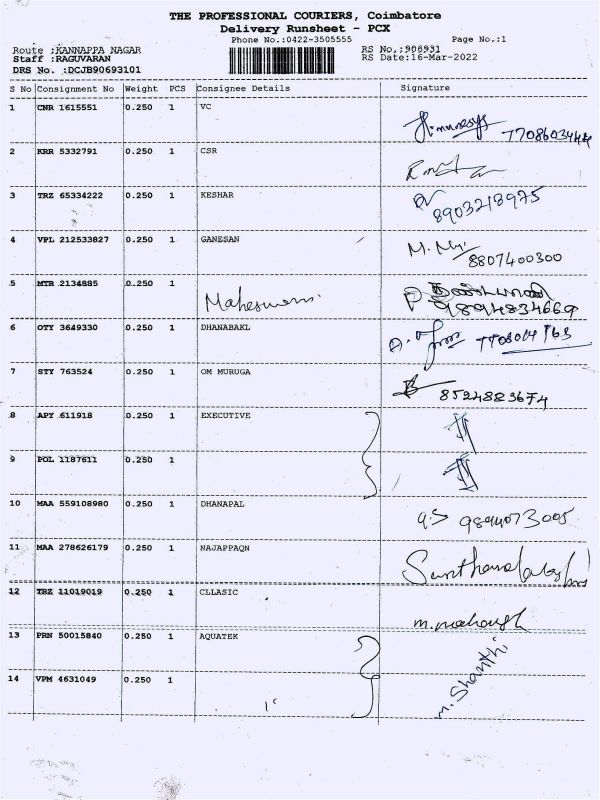 THE PROFESSIONAL COURIERS, Coimbatore
Delivery Runsheet - PCX
Phone No.:0422-3505555 Page No.:1
Route :KANNAPPA NAGAR RS No.:906931
Staff :RAGUVARAN RS Date:16-Mar-2022
DRS No. :DCJB90693101
S No Consignment No Weight PCS Consignee Details Signature
1 CNR 1615551 0.250 1 VC 7708603444
2 KRR 5332791 0.250 1 CSR
3 TRZ 65334222 0.250 1 KESHAR 8903218975
4 VPL 212533827 0.250 1 GANESAN 8807400300
5 MTR 2134885 0.250 1 Maheswari 9894834669
6 OTY 3649330 0.250 1 DHANABAKL
7 STY 763524 0.250 1 OM MURUGA 8524883674
8 APY 611918 0.250 1 EXECUTIVE
9 POL 1187611 0.250 1
10 MAA 559108980 0.250 1 DHANAPAL 9894073005
11 MAA 278626179 0.250 1 NAJAPPAQN
12 TBZ 11019019 0.250 1 CLLASIC
13 PRN 50015840 0.250 1 AQUATEK
14 VPM 4631049 0.250 1 M. Shanthi